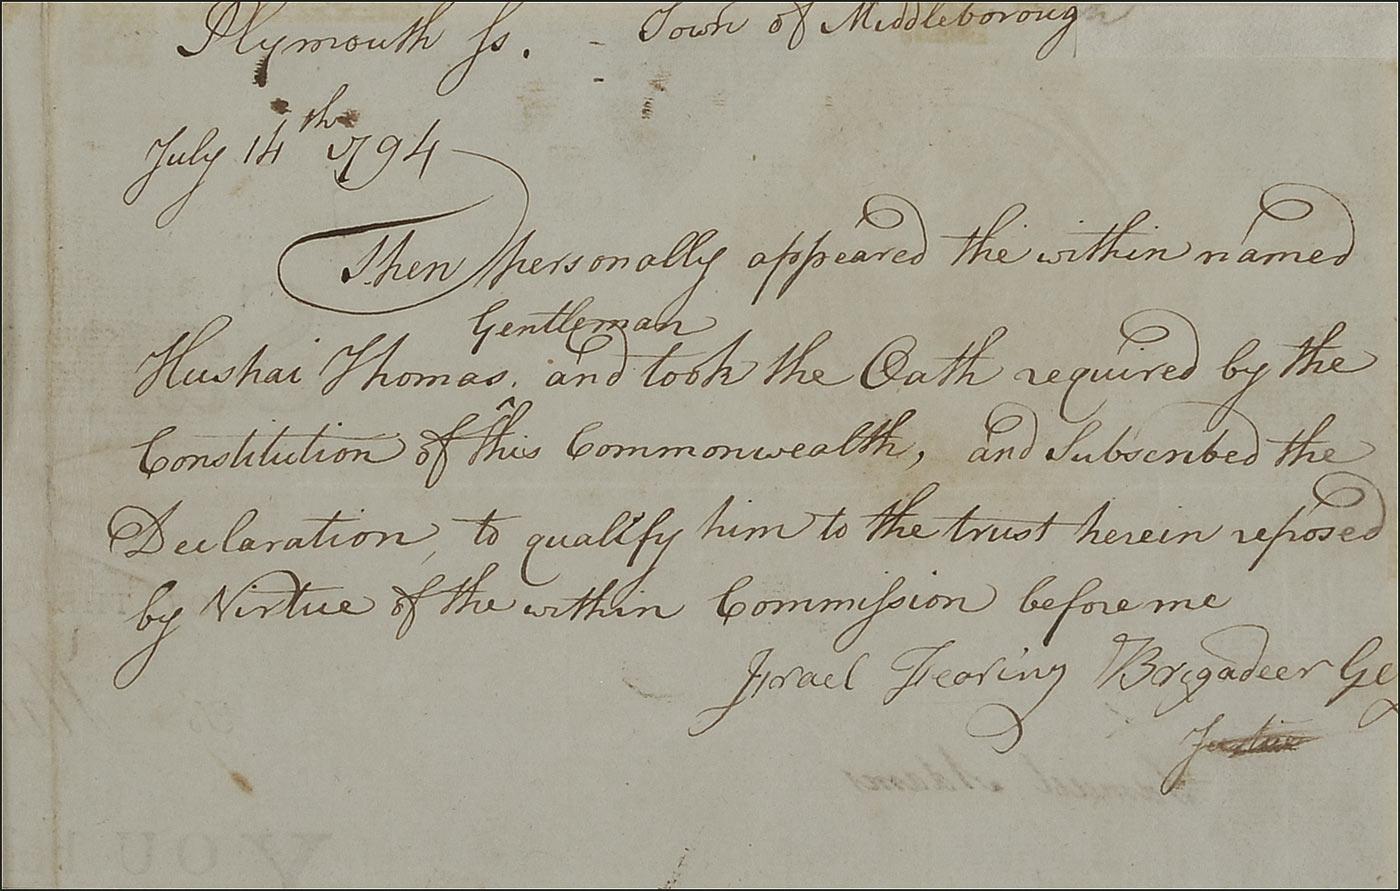 Plymouth ss. - Town of Middleborough
July 14th 1794
Then personally appeared the within named
Gentleman
Hushai Thomas. ^ and took the Oath required by the
Constitution of this Commonwealth, and Subscribed the
Declaration, to qualify him to the trust herein reposed
by Virtue of the within Commission before me
Israel Fearing Brigadeer Ge
Justice
Samuel Adams
YOU